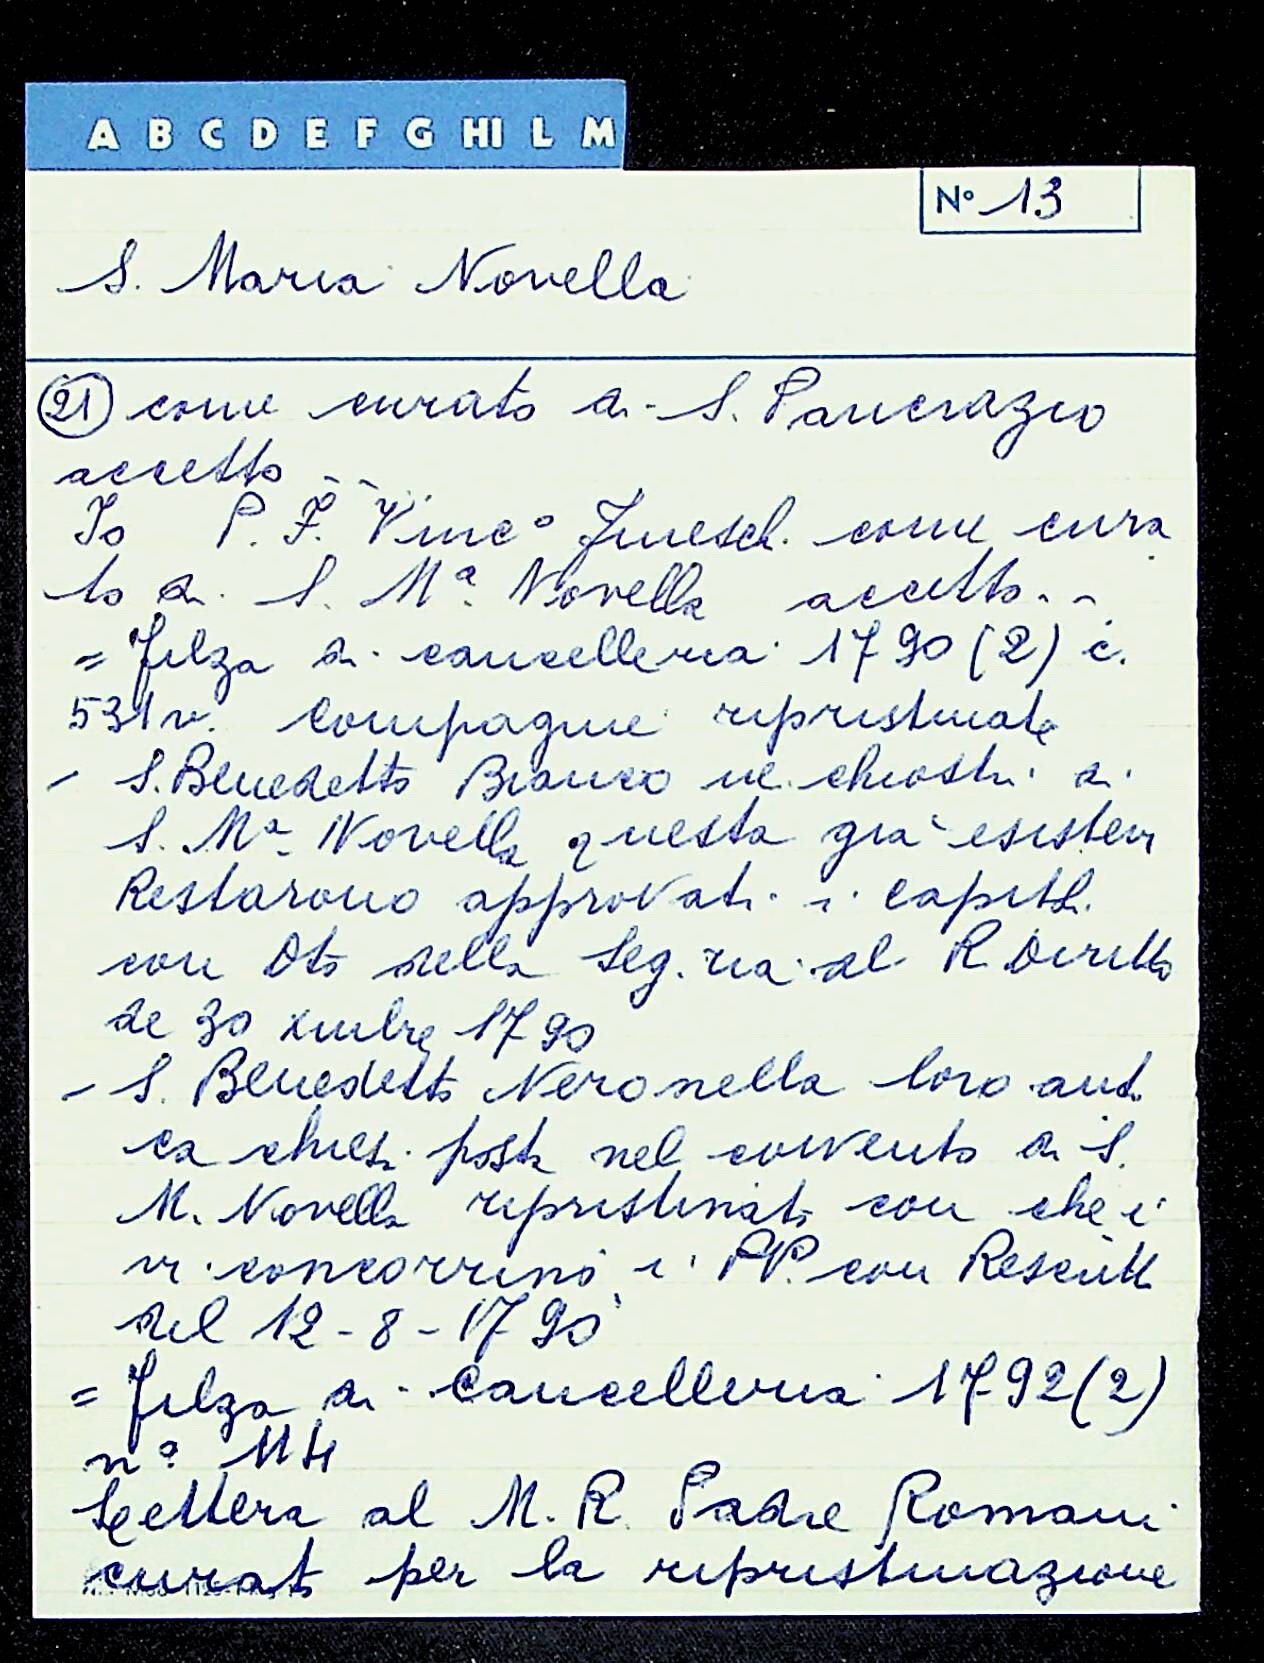 A B C D E F G HI L M
N° 13
S. Maria Novella
(21) come curato di S. Pancrazio
accetto --
Io P. F. Vinc° come cura
to di S. Mª Novella accetto --
= Filza di cancelleria 1790 (2) c.
531v. Compagnie ripristinate
- S. Benedetto Bianco ne chiostri di
S. Mª Novella questa già esisteva
Restarono approvati i capitoli
con Dto della Seg.ria al R. Diritto
de 30 xmbre 1790
- S. Benedetto Nero nella loro anti
ca chiesa posta nel convento di S.
M. Novella ripristinata con che
vi concorrino i PP. con Rescritto
del 12-8-1790
= Filza di Cancelleria 1792 (2)
n° 114
Lettera al M. R. Padre Romani
curato per la ripristinazione